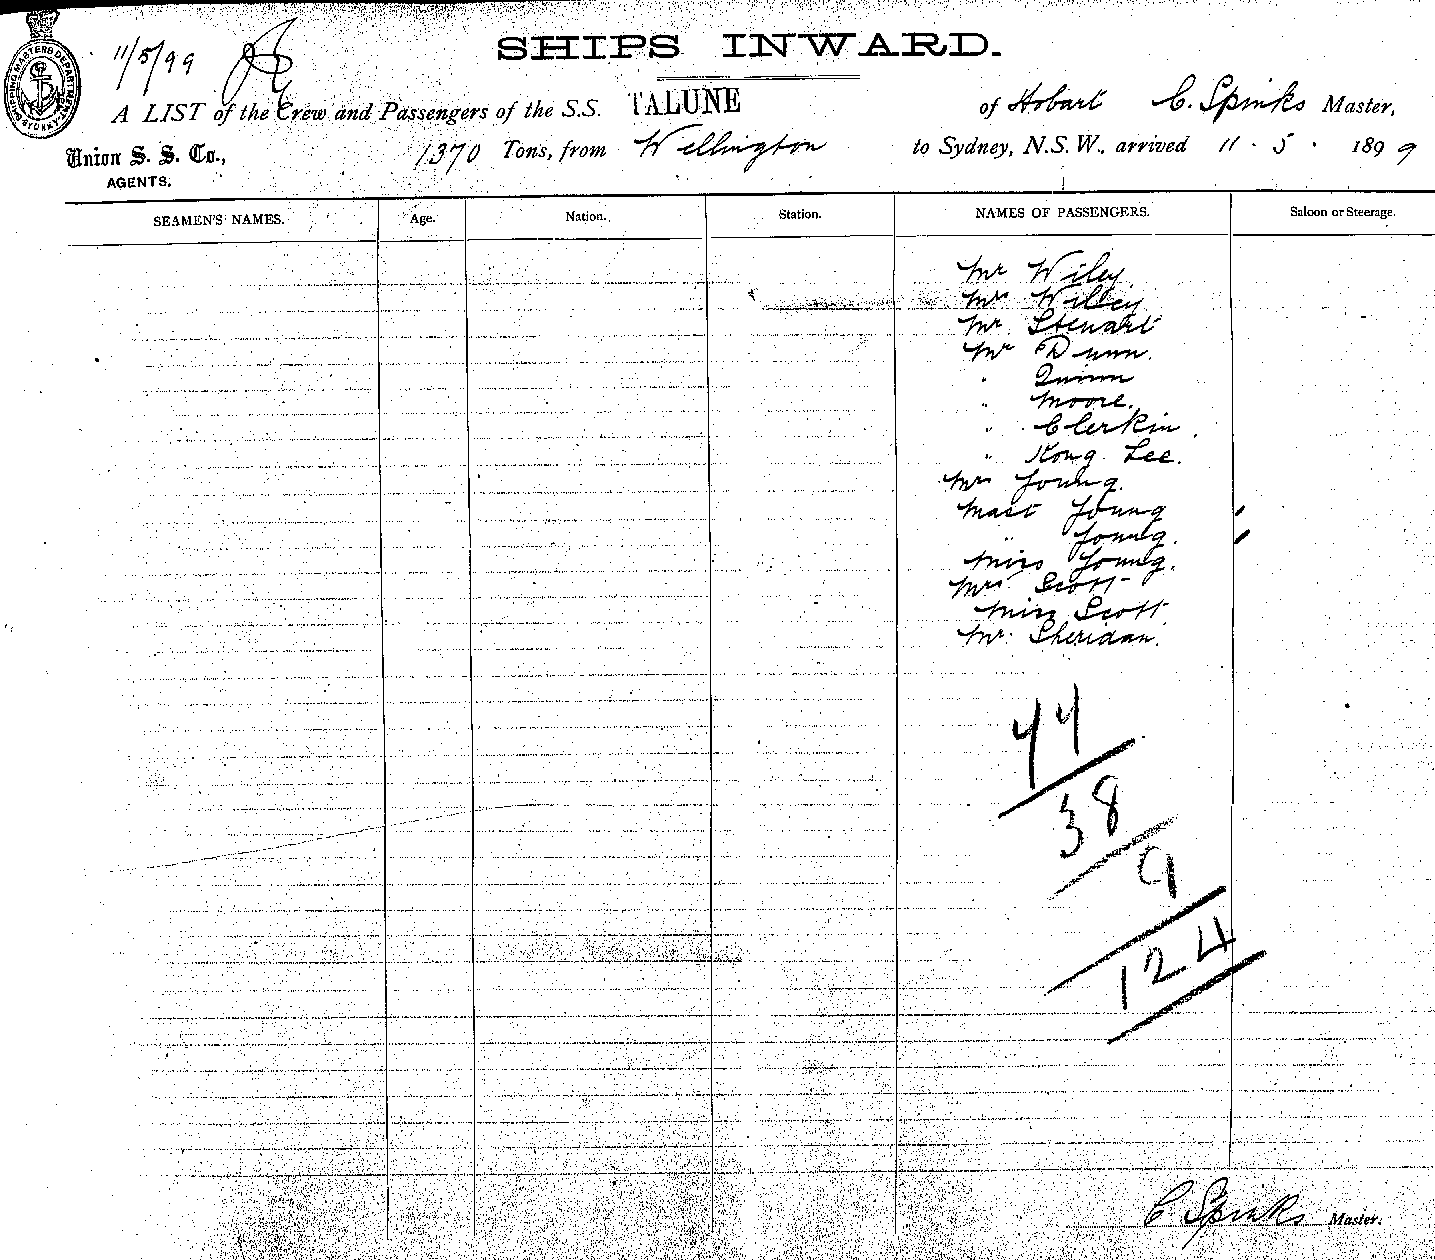 SHIPPING MASTERS DEPARTMENT SYDNEY
11/5/99
SHIPS INWARD.
A LIST of the Crew and Passengers of the S.S. TALUNE of Hobart C. Spinks Master,
Union S. S. Co., AGENTS.
1370 Tons, from Wellington to Sydney, N.S.W., arrived 11 . 5 . 1899
SEAMEN'S NAMES. Age. Nation. Station. NAMES OF PASSENGERS. Saloon or Steerage.
Mr Wiley.
Mr Willey
Mr Stewart
Mr Dunn.
" Quinn
" Moore.
" Clerkin.
" Kong Lee.
Mrs Young.
Mast Young
" Young.
Miss Young.
Mrs Scott
Miss Scott
Mr. Sheridan.
44
38
9
124
C Spinks Master.